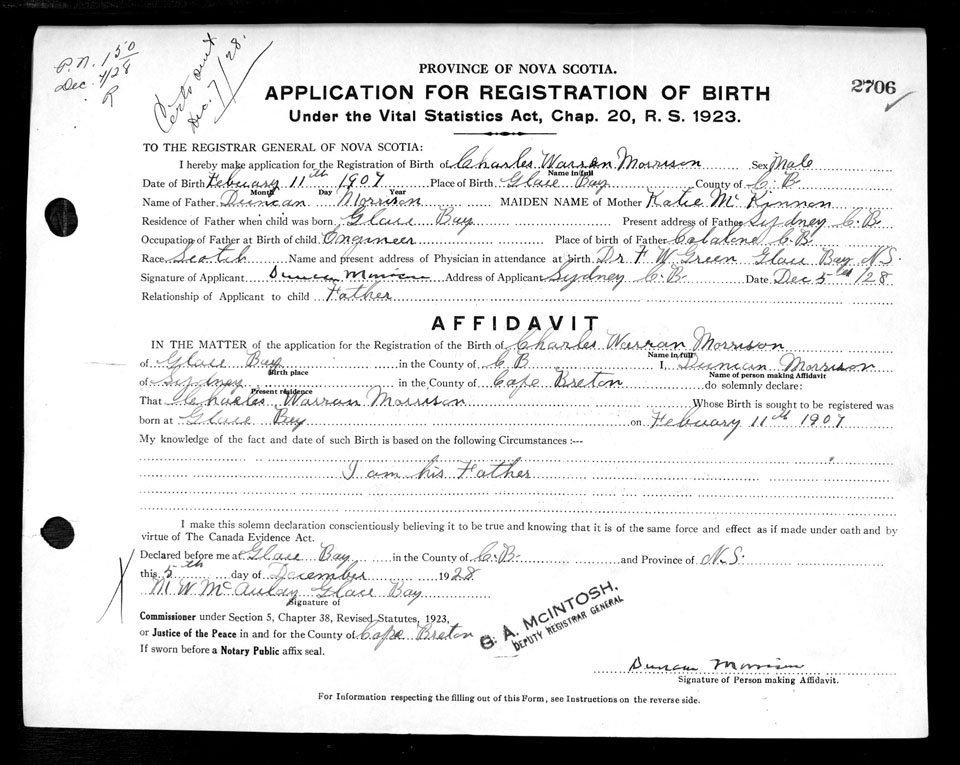 P.N. 150
Dec. 4/28
R
Certs sent
Dec. 7/28.
PROVINCE OF NOVA SCOTIA.
2706
APPLICATION FOR REGISTRATION OF BIRTH
Under the Vital Statistics Act, Chap. 20, R. S. 1923.
TO THE REGISTRAR GENERAL OF NOVA SCOTIA:
I hereby make application for the Registration of Birth of Charles Warren Morrison Sex Male
Name in full
Date of Birth Febuary 11th 1907 Place of Birth Glace Bay County of C. B
Month Day Year
Name of Father Duncan Morrison MAIDEN NAME of Mother Katie McKinnon
Residence of Father when child was born Glace Bay Present address of Father Sydney C.B.
Occupation of Father at Birth of child Engineer Place of birth of Father Catalone C.B.
Race Scotch Name and present address of Physician in attendance at birth. Dr. F. W Green Glace Bay N.S.
Signature of Applicant Duncan Morrison Address of Applicant Sydney C.B Date Dec 5th /28
Relationship of Applicant to child Father
AFFIDAVIT
IN THE MATTER of the application for the Registration of the Birth of Charles Warran Morrison
Name in full
of Glace Bay in the County of C B I, Duncan Morrison
Birth place Name of person making Affidavit
of Sydney in the County of Cape Breton do solemnly declare:
Present residence
That Charles Warran Morrison Whose Birth is sought to be registered was
born at Glace Bay on Febuary 11th 1907
My knowledge of the fact and date of such Birth is based on the following Circumstances :--
I am his Father
I make this solemn declaration conscientiously believing it to be true and knowing that it is of the same force and effect as if made under oath and by
virtue of The Canada Evidence Act.
Declared before me at Glace Bay in the County of C.B. and Province of N.S.
this 5th day of December 1928
M W McAulay Glace Bay
Signature of
Commissioner under Section 5, Chapter 38, Revised Statutes, 1923,
or Justice of the Peace in and for the County of Cape Breton
If sworn before a Notary Public affix seal.
G. A. McINTOSH.
DEPUTY REGISTRAR GENERAL
Duncan Morrison
Signature of Person making Affidavit.
For Information respecting the filling out of this Form, see Instructions on the reverse side.